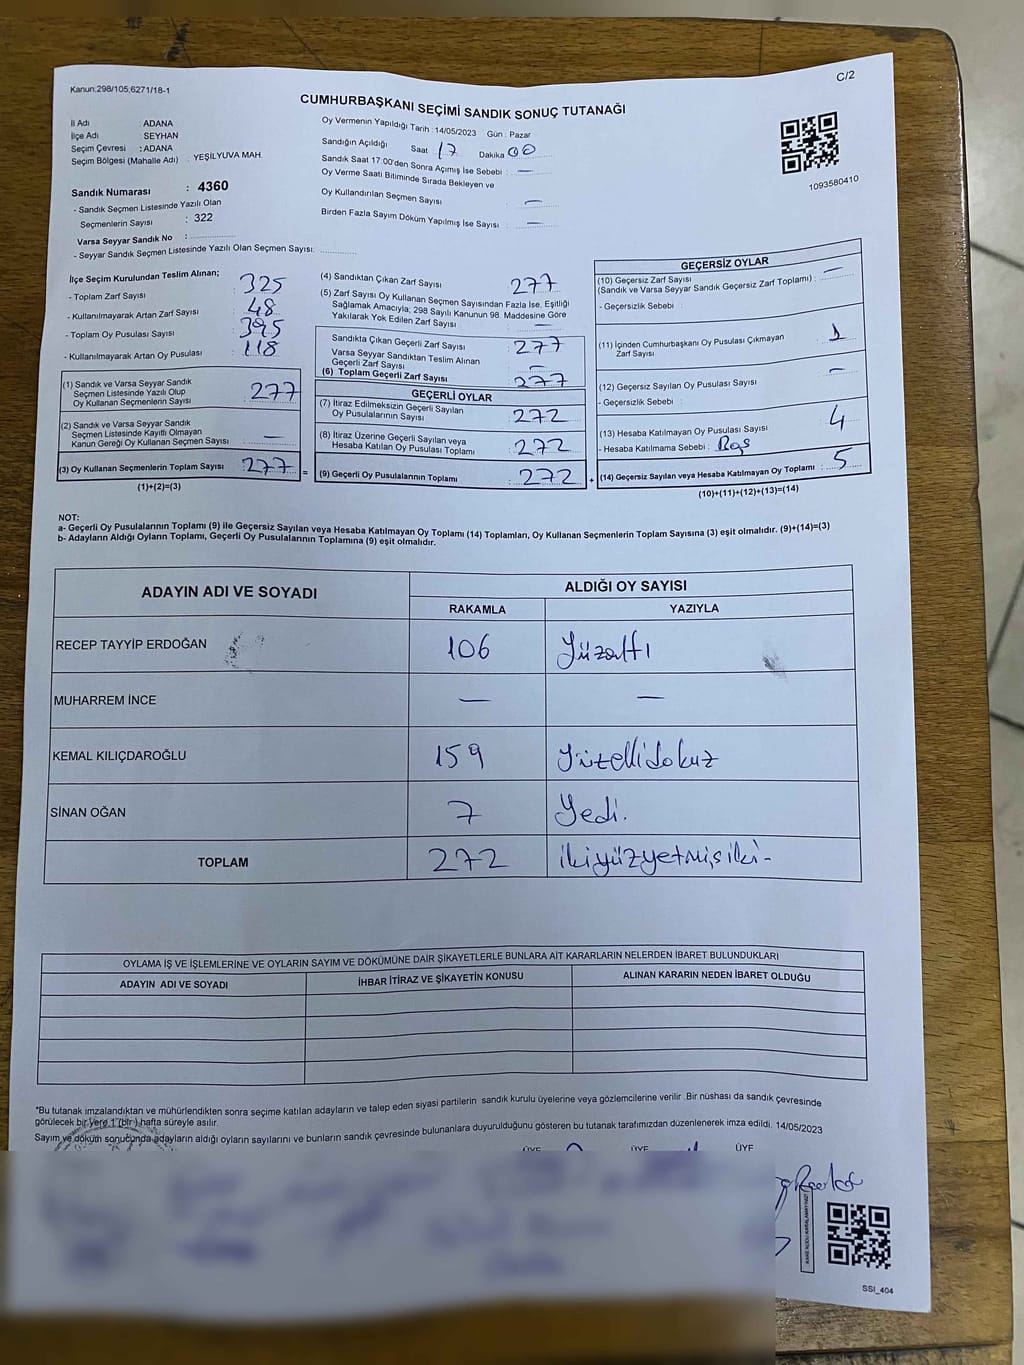 Kanun:298/105,6271/18-1
C/2
CUMHURBAŞKANI SEÇİMİ SANDIK SONUÇ TUTANAĞI
İl Adı ADANA
İlçe Adı : SEYHAN
Seçim Çevresi : ADANA
Seçim Bölgesi (Mahalle Adı) : YEŞİLYUVA MAH.
Sandık Numarası : 4360
- Sandık Seçmen Listesinde Yazılı Olan
Seçmenlerin Sayısı : 322
Varsa Seyyar Sandık No :
- Seyyar Sandık Seçmen Listesinde Yazılı Olan Seçmen Sayısı:
Oy Vermenin Yapıldığı Tarih : 14/05/2023 Gün : Pazar
Sandığın Açıldığı Saat : 17 Dakika 00
Sandık Saat 17:00'den Sonra Açımış İse Sebebi : —
Oy Verme Saati Bitiminde Sırada Bekleyen ve
Oy Kullandırılan Seçmen Sayısı : —
Birden Fazla Sayım Döküm Yapılmış İse Sayısı : —
1093580410
İlçe Seçim Kurulundan Teslim Alınan;
- Toplam Zarf Sayısı : 325
- Kullanılmayarak Artan Zarf Sayısı : 48
- Toplam Oy Pusulası Sayısı : 395
- Kullanılmayarak Artan Oy Pusulası : 118
(1) Sandık ve Varsa Seyyar Sandık
Seçmen Listesinde Yazılı Olup
Oy Kullanan Seçmenlerin Sayısı : 277
(2) Sandık ve Varsa Seyyar Sandık
Seçmen Listesinde Kayıtlı Olmayan
Kanun Gereği Oy Kullanan Seçmen Sayısı : —
(3) Oy Kullanan Seçmenlerin Toplam Sayısı : 277 =
(1)+(2)=(3)
(4) Sandıktan Çıkan Zarf Sayısı : 277
(5) Zarf Sayısı Oy Kullanan Seçmen Sayısından Fazla İse, Eşitliği
Sağlamak Amacıyla; 298 Sayılı Kanunun 98. Maddesine Göre
Yakılarak Yok Edilen Zarf Sayısı : —
Sandıkta Çıkan Geçerli Zarf Sayısı : 277
Varsa Seyyar Sandıktan Teslim Alınan
Geçerli Zarf Sayısı : —
(6) Toplam Geçerli Zarf Sayısı : 277
GEÇERLİ OYLAR
(7) İtiraz Edilmeksizin Geçerli Sayılan
Oy Pusulalarının Sayısı : 272
(8) İtiraz Üzerine Geçerli Sayılan veya
Hesaba Katılan Oy Pusulası Toplamı : 272
(9) Geçerli Oy Pusulalarının Toplamı : 272 +
GEÇERSİZ OYLAR
(10) Geçersiz Zarf Sayısı
(Sandık ve Varsa Seyyar Sandık Geçersiz Zarf Toplamı) : —
- Geçersizlik Sebebi :
(11) İçinden Cumhurbaşkanı Oy Pusulası Çıkmayan
Zarf Sayısı : 1
(12) Geçersiz Sayılan Oy Pusulası Sayısı : —
- Geçersizlik Sebebi :
(13) Hesaba Katılmayan Oy Pusulası Sayısı : 4
- Hesaba Katılmama Sebebi : Boş
(14) Geçersiz Sayılan veya Hesaba Katılmayan Oy Toplamı : 5
(10)+(11)+(12)+(13)=(14)
NOT:
a- Geçerli Oy Pusulalarının Toplamı (9) ile Geçersiz Sayılan veya Hesaba Katılmayan Oy Toplamı (14) Toplamları, Oy Kullanan Seçmenlerin Toplam Sayısına (3) eşit olmalıdır. (9)+(14)=(3)
b- Adayların Aldığı Oyların Toplamı, Geçerli Oy Pusulalarının Toplamına (9) eşit olmalıdır.
ADAYIN ADI VE SOYADI ALDIĞI OY SAYISI
RAKAMLA YAZIYLA
RECEP TAYYİP ERDOĞAN 106 Yüzaltı
MUHARREM İNCE — —
KEMAL KILIÇDAROĞLU 159 Yüzellidokuz
SİNAN OĞAN 7 Yedi.
TOPLAM 272 ikiyüzyetmişiki-
OYLAMA İŞ VE İŞLEMLERİNE VE OYLARIN SAYIM VE DÖKÜMÜNE DAİR ŞİKAYETLERLE BUNLARA AİT KARARLARIN NELERDEN İBARET BULUNDUKLARI
ADAYIN ADI VE SOYADI İHBAR İTİRAZ VE ŞİKAYETİN KONUSU ALINAN KARARIN NEDEN İBARET OLDUĞU
"Bu tutanak imzalandıktan ve mühürlendikten sonra seçime katılan adayların ve talep eden siyasi partilerin sandık kurulu üyelerine veya gözlemcilerine verilir. Bir nüshası da sandık çevresinde
görülecek bir yere 1 (bir) hafta süreyle asılır.
Sayım ve döküm sonucunda adayların aldığı oyların sayılarını ve bunların sandık çevresinde bulunanlara duyurulduğunu gösteren bu tutanak tarafımızdan düzenlenerek imza edildi. 14/05/2023
ÜYE ÜYE ÜYE
SSI_404